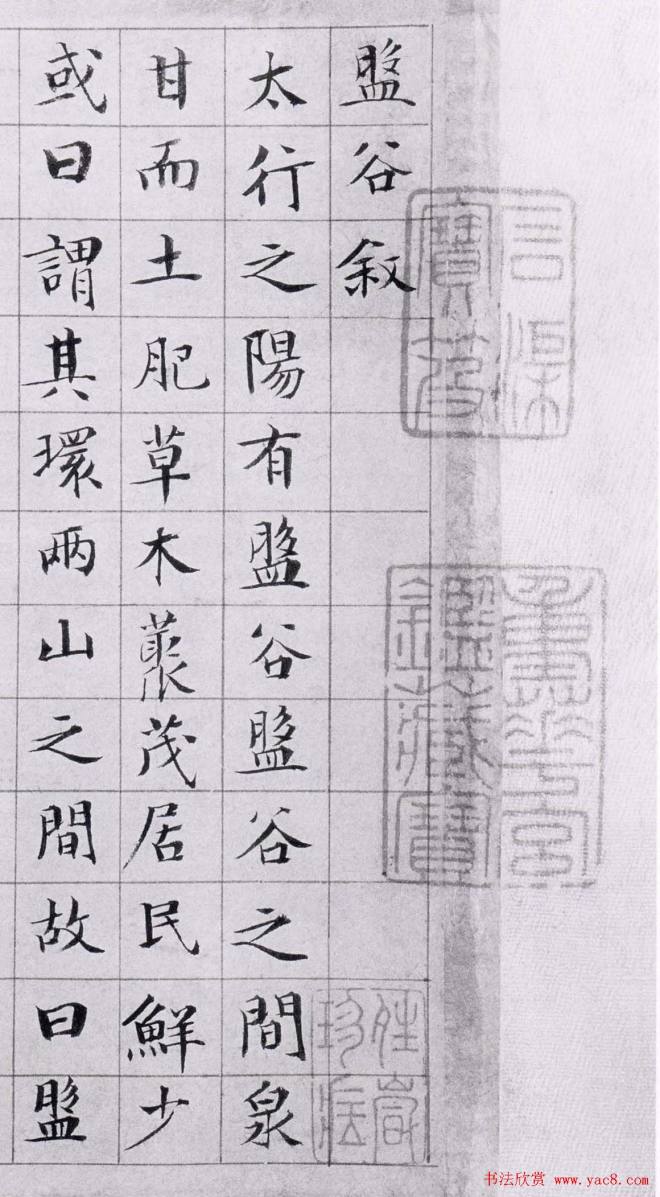 盤谷叙
太行之陽有盤谷盤谷之間泉
甘而土肥草木藂茂居民鮮少
或曰謂其環兩山之間故曰盤
石渠寶笈
重華宮鑑藏寶
书法欣赏 www.yac8.com